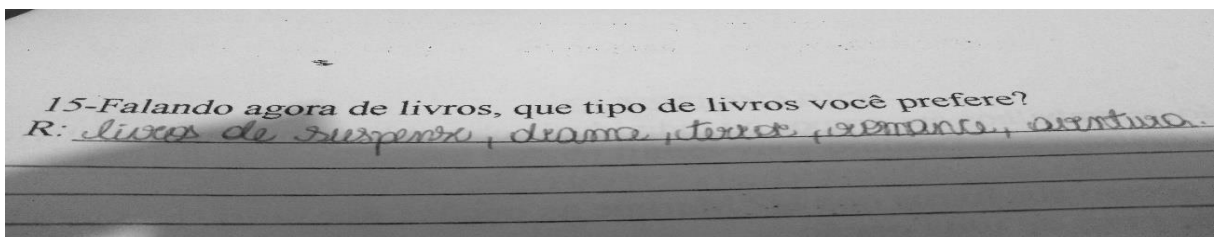 15-Falando agora de livros, que tipo de livros você prefere?
R: livros de suspense, drama, terror, romance, aventura.